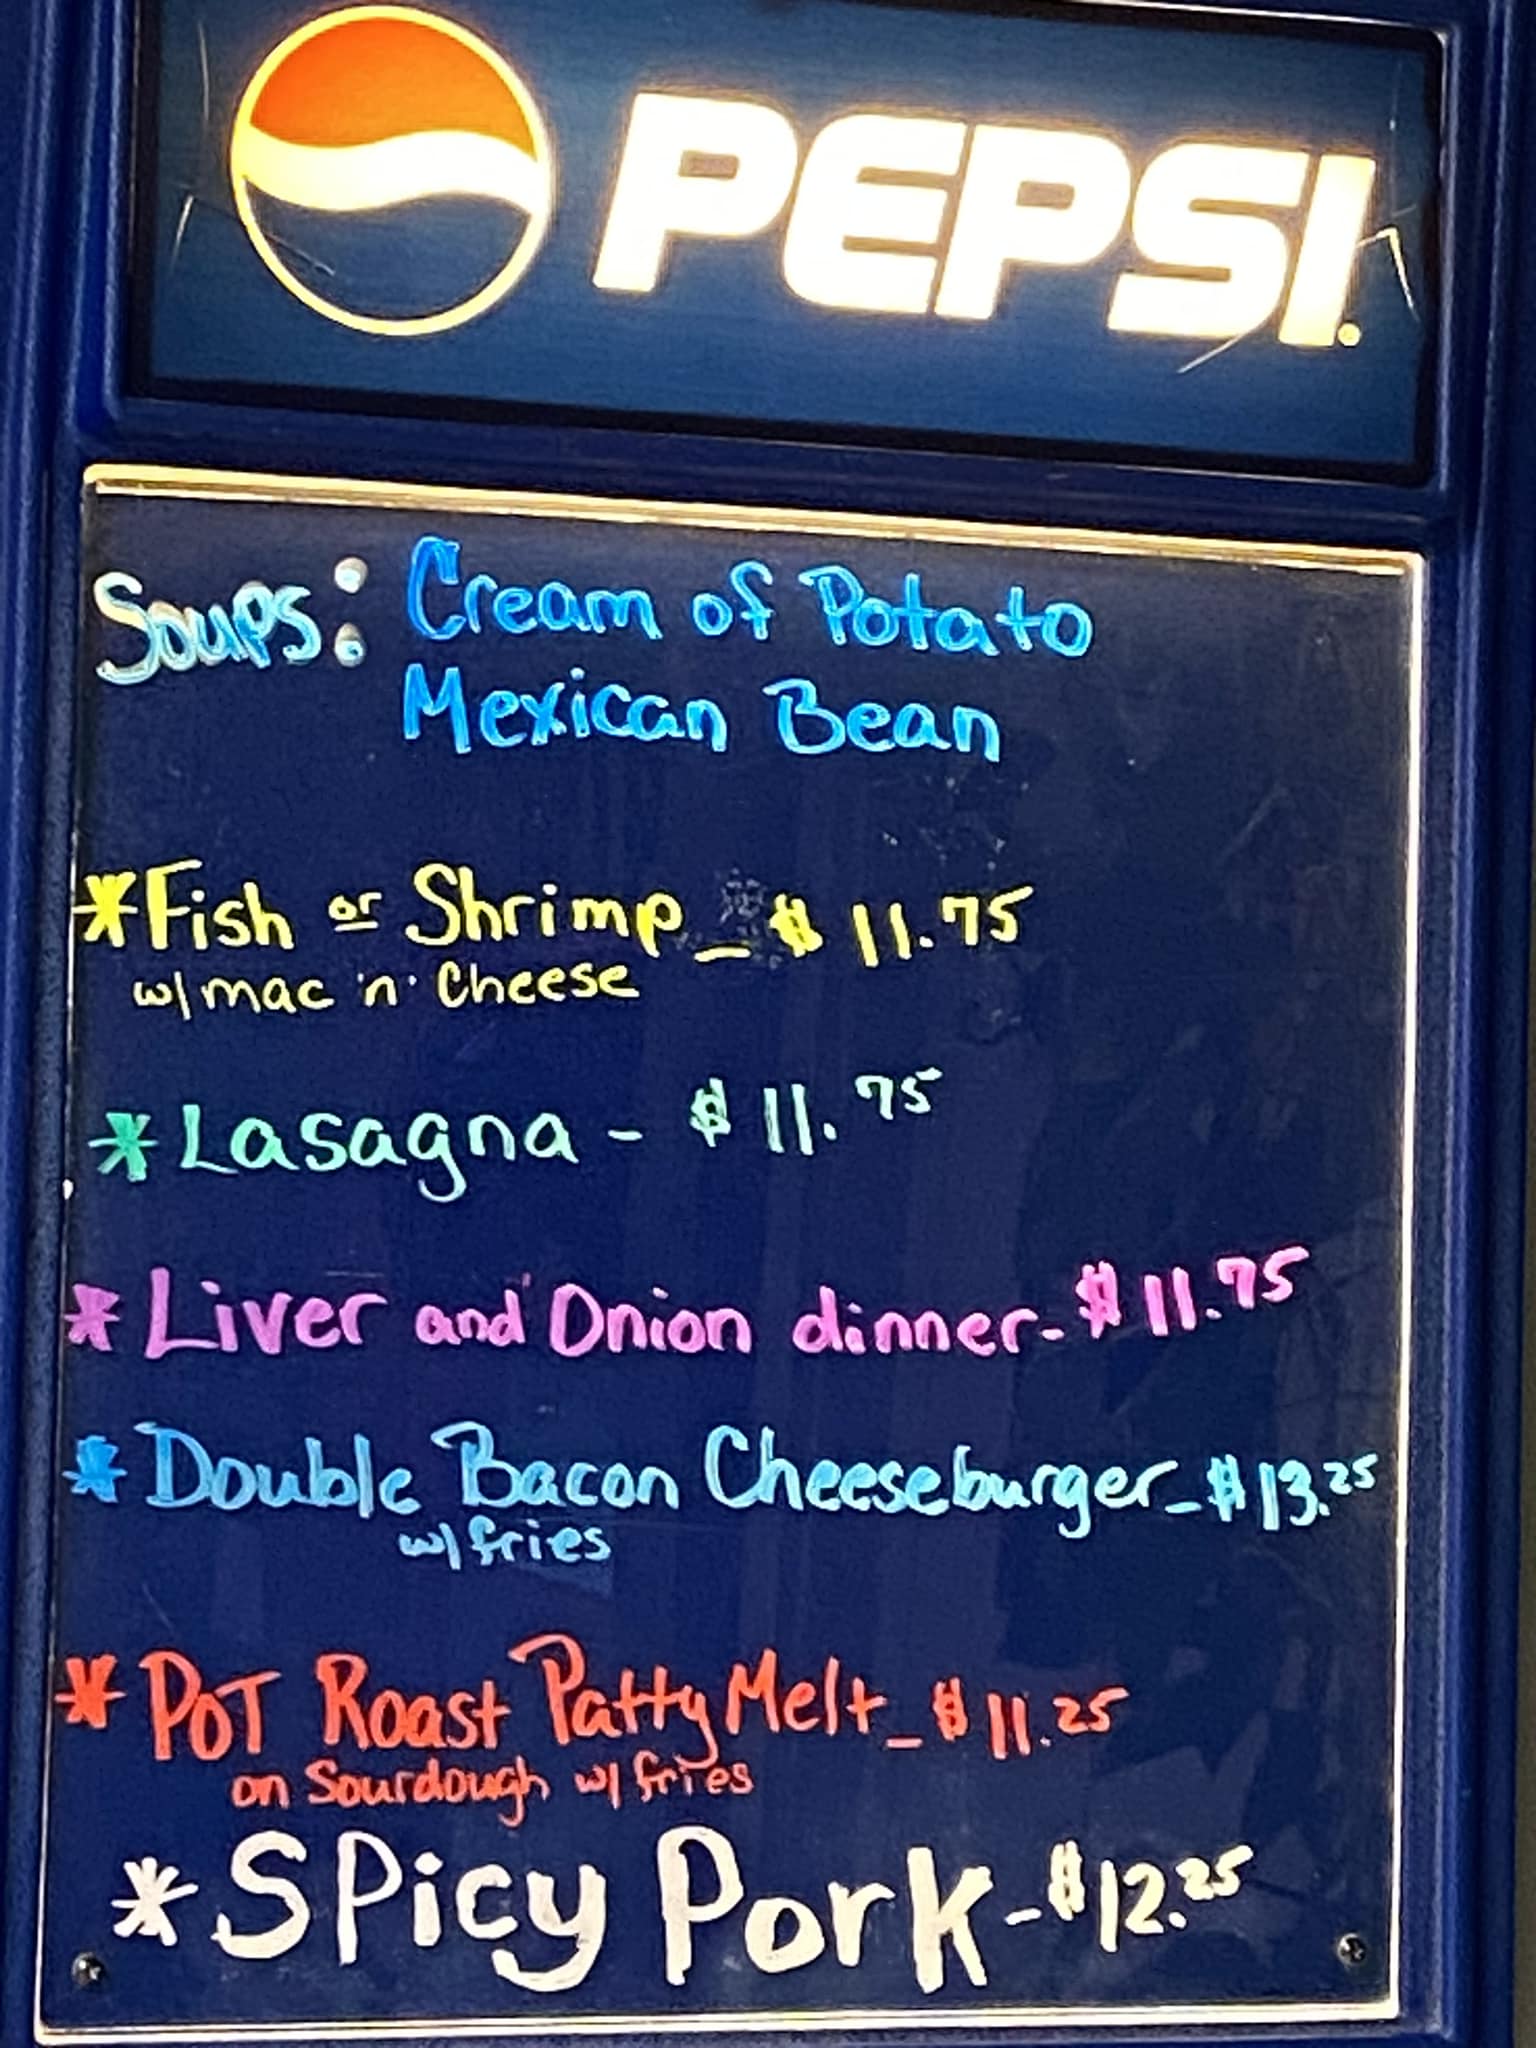 PEPSI.
Soups: Cream of Potato
Mexican Bean
*Fish or Shrimp - $11.75
w/ mac 'n' Cheese
*Lasagna - $11.75
*Liver and Onion dinner - $11.75
*Double Bacon Cheeseburger - $13.25
w/ fries
*POT Roast Patty Melt - $11.25
on Sourdough w/ fries
*SPicy Pork - $12.25